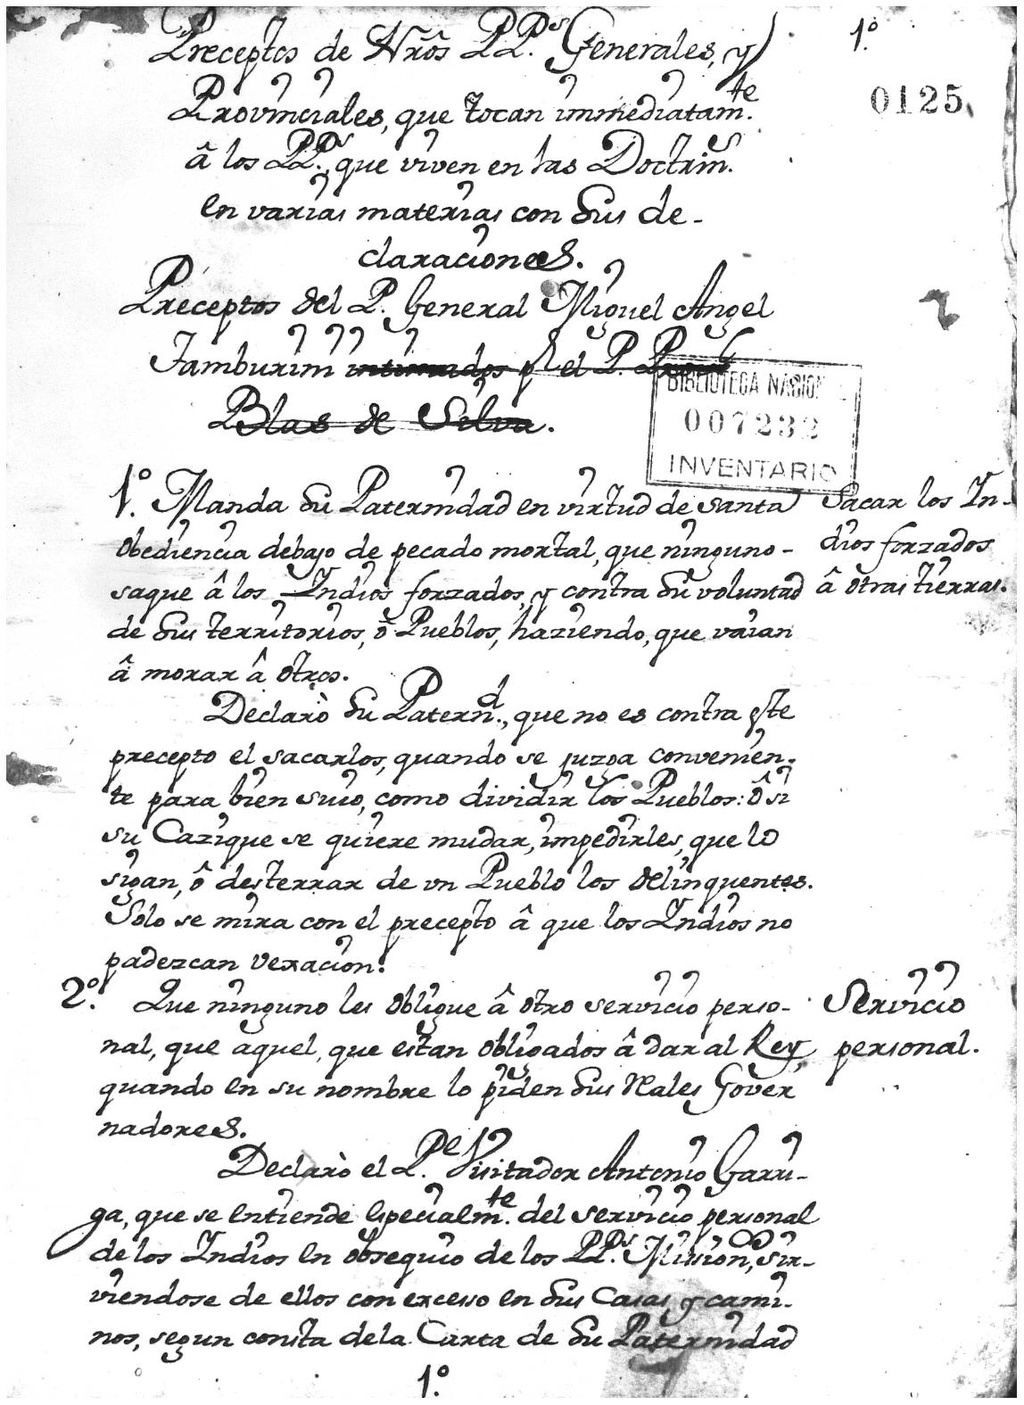 1.º
Preceptos de Nrõs PP.s Generales, y
0125
Provinciales, que tocan immediatam.te
â los PP.s que viven en las Doctrin.s
en varias materias con sus de-
claraciones.
Preceptos del P. General Miguel Angel
Tamburini intimados pr el P. Prov.l
Blas de Silva.
BIBLIOTECA NACION
007232
INVENTARIO
1.º Manda su Paternidad en virtud de santa
Obediencia debajo de pecado mortal, que ninguno-
saque â los Indios forzados, y contra su voluntad
de sus territorios, ô Pueblos, haziendo, que vaian
â morar â otros.
Sacar los In-
dios forzados
â otras tierras.
Declarò su Patern.d, que no es contra este
precepto el sacarlos, quando se juzga convenien-
te para bien suio, como dividir los Pueblos: ô si
su Cazique se quiere mudar, impedirles, que lo
sigan, ô desterrar de vn Pueblo los delinquentes.
Solo se mira con el precepto â que los Indios no
padezcan vexacion.
2.º Que ninguno les obligue â otro servicio perso-
nal, que aquel, que estan obligados â dar al Rey,
quando en su nombre lo piden sus Rales Gover
nadores.
Servicio
personal.
Declarò el P.e Visitador Antonio Garri-
ga, que se entiende especialm.te del servicio personal
de los Indios en obsequio de los PP.s Mission.s, sir-
viendose de ellos con excesso en sus Casas y cami-
nos, segun consta de la Carta de su Paternidad
1.º